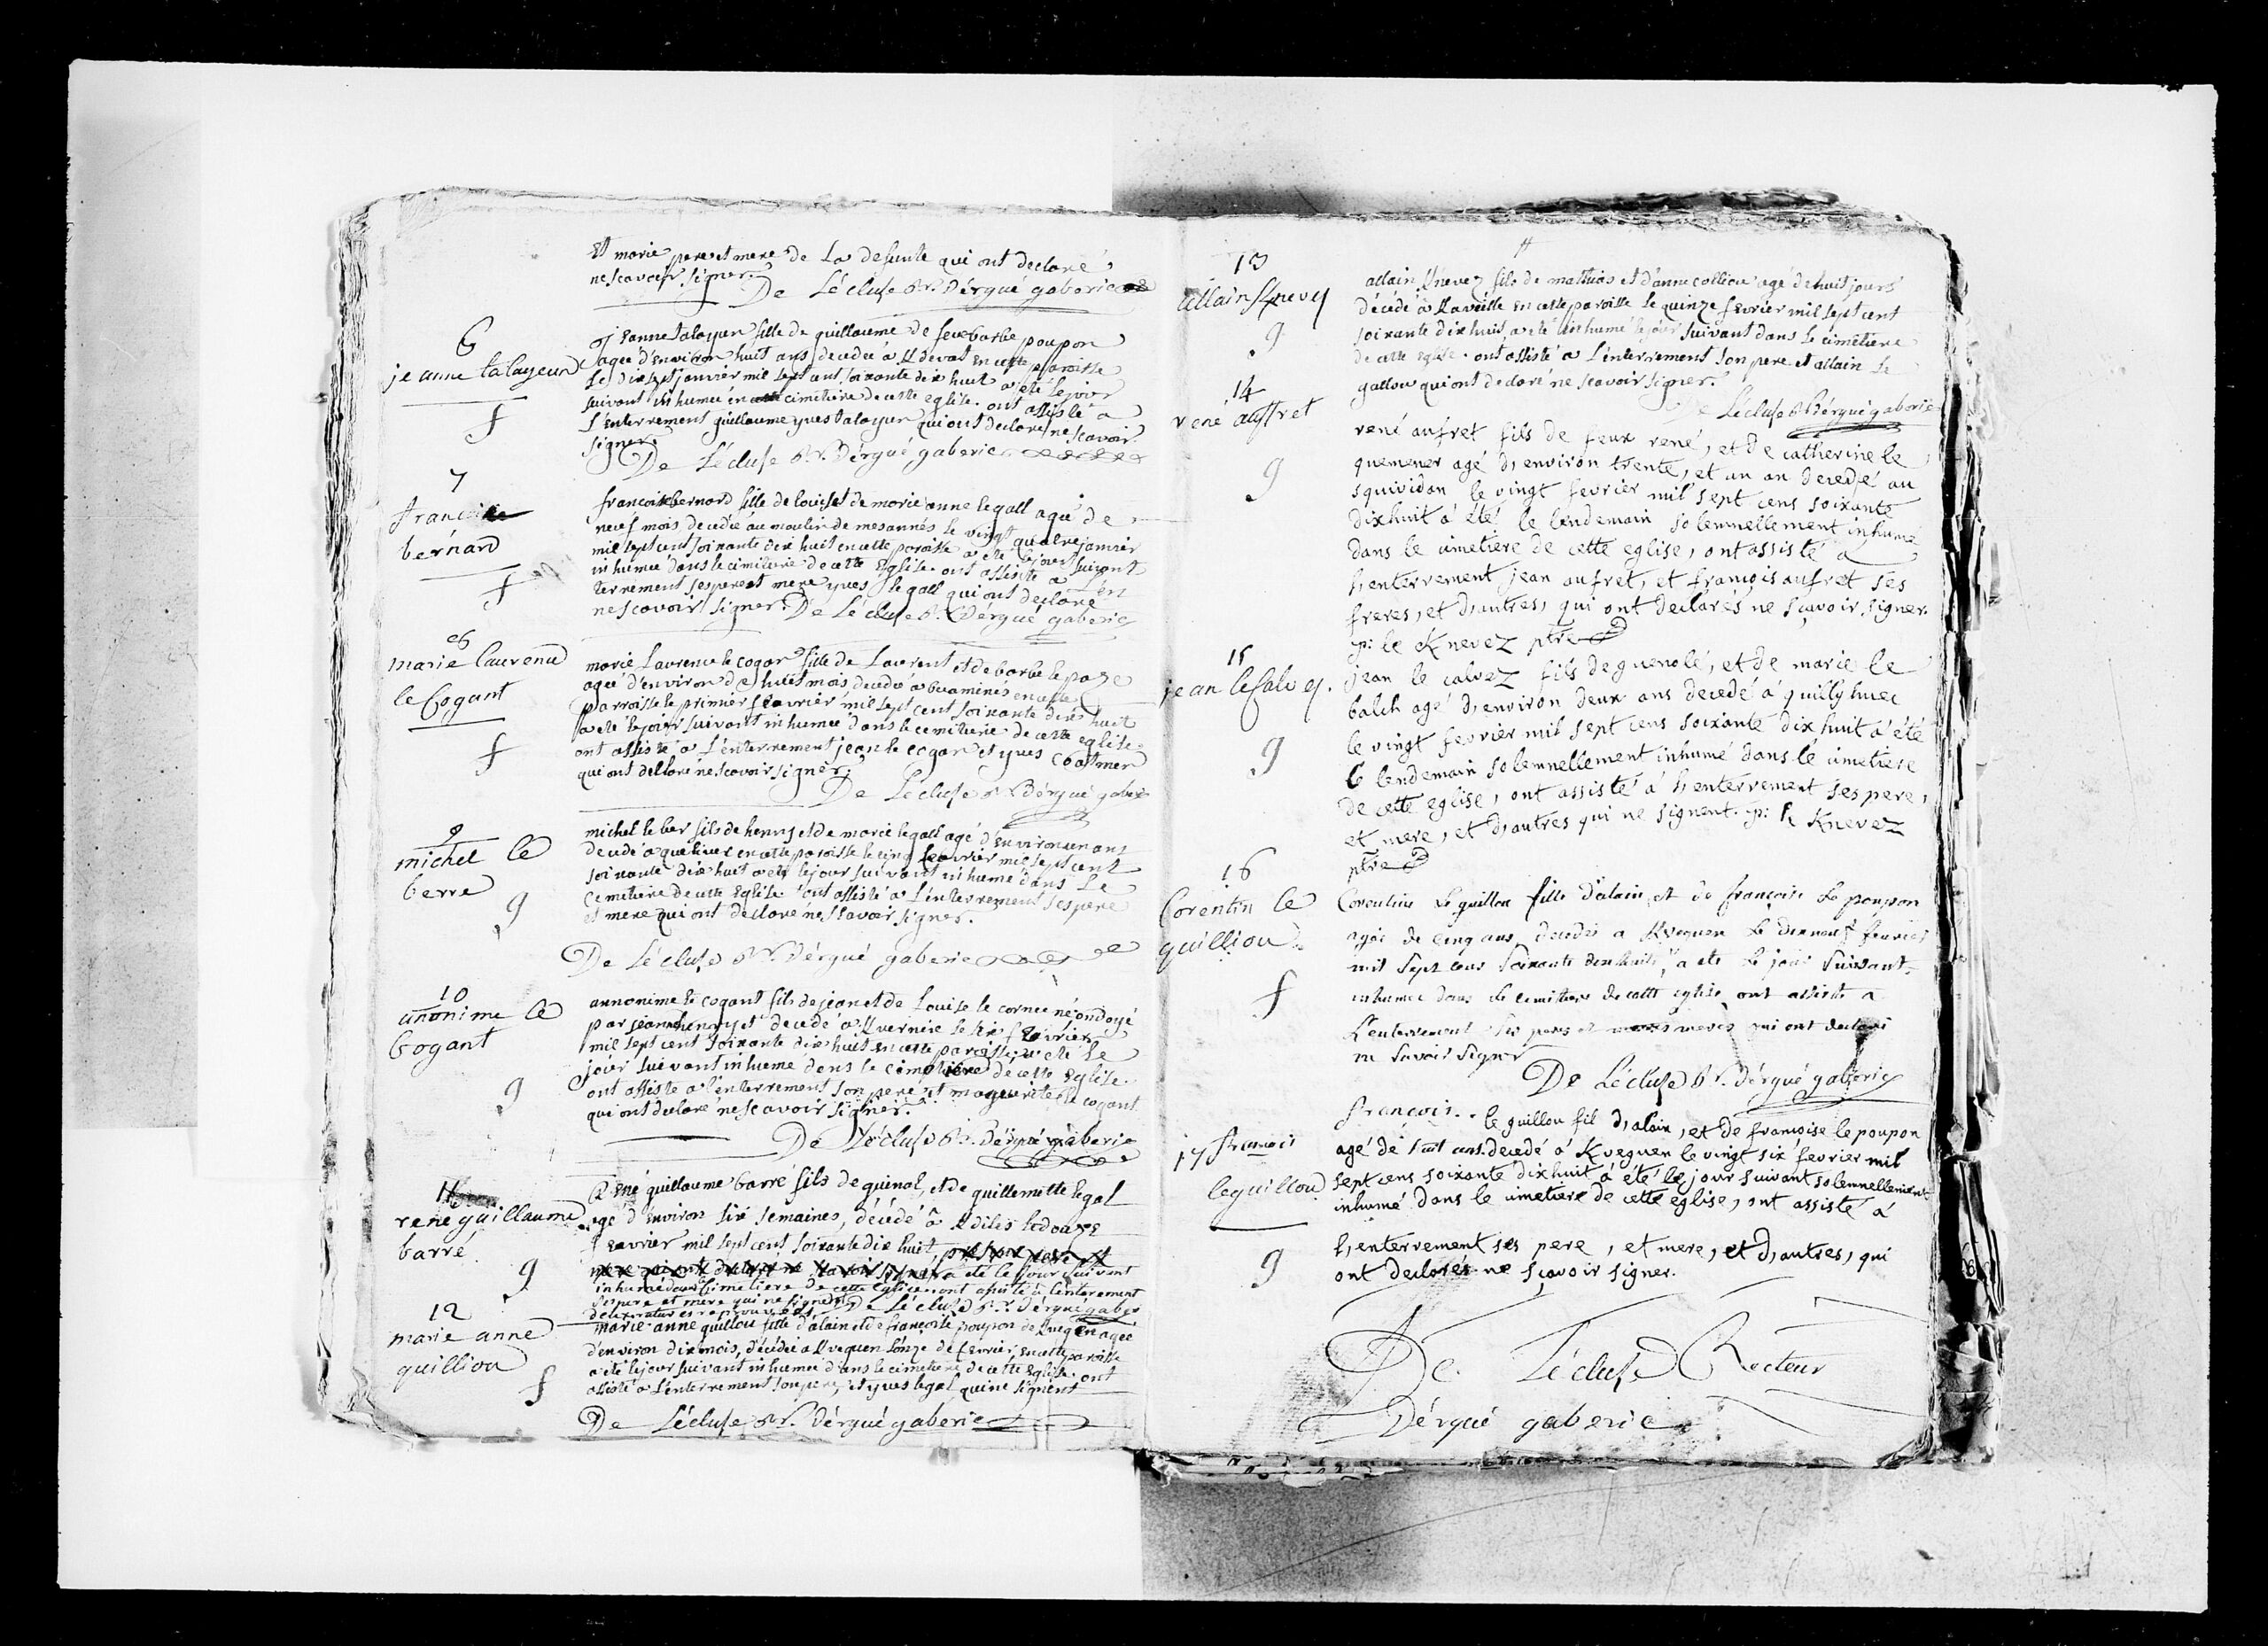 Et marie pere et mere de La defunte qui ont declaré
ne scavoir signer.
De Lécluse Rr. Dérgué gaberic
6
jeanne talayeur
f
jeanne talayeur fille de guillaume de feue barbe poupon
agée d'environ huit ans decedée à Kdevot en cette paroisse
le dix sept janvier mil sept cent soixante dix huit a été le jour
suivant inhumée en cimetiere de cette eglise. ont assisté a
l'enterrement guillaume yves talayeur qui ont declaré ne scavoir
signer.
De Lécluse Rr. Dérgué gaberic
7
francoise
bernard
f
francoise bernard fille de louis et de marie anne le gall agée de
neuf mois decedée au moulin de mesannés le vingt quatre janvier
mil sept cent soixante dix huit en cette paroisse a eté le jour suivant
inhumée dans le cimitiere de cette Eglise. ont assisté a l'en
terrement ses pere et mere yves le gall qui ont declaré
ne scavoir signer. De Lécluse Rr. Dérgué gaberic
8
marie laurence
le Cogant
f
marie Laurence le cogan fille de Laurent et de barbe le page
agée d'environ de huit mois decedée a en cette
parroisse le primier feavriér mil sept cent soixante dix huit
a eté le jour suivant inhumée dans le cemitiere de cette eglise.
ont assisté a L'enterrement jean le cogan et yves Coatmen
qui ont declaré ne scavoir signér.
De Lécluse Rr Dérgué gaberic
9
michel le
berre
g
michel le ber fils de henry et de marie le gall agé d'environ un ans
decedé a quelinec en cette paroisse le cinq feavriér mil sept cent
soixante dix huit a eté le jour suivant inhumé dans Le
cemitiere de cette Eglise ont assisté a L'enterrement ses pere
et mere qui ont declaré ne scavoir signer.
De Lécluse Rr. Dérgué gaberic
10
anonime le
Cogant
g
annonime le cogant fils de jean et de Louise le cornec né ondoyé
par jeanne henry et decedé a Kvernie le six feavrier
mil sept cent soixante dix huit en cette paroisse, a eté le
jour suivant inhumé dens le cimetiere de cette Eglise.
ont assisté a l'enterrement son pere et maguerite le cogant
qui ont declaré ne scavoir signer.
De Lécluse Rr. Dérgué gaberic
11
rené guillaume
barré
g
René guillaume barré fils de guénol, et de guillemette le gal
agé d'environ six semaines, décédé à Kdiles le douze
feavrier mil sept cent soixante dix huit, a été le jour suivant
inhumé dans cimetiere De cette Eglise. ont assisté à l'enterement
ses pere et mere qui ne signent De Lécluse Rr. Dérgué gaber
12
marie anne
guilliou
f
marie-anne guillou fille d'alain et de françoise poupon de Kveguen agée
d'environ dix mois, décédée a Kveguen l'onze de fevrier en cette paroisse
a été le jour suivant inhumée dans le cimetiere de cette Eglise. ont
assisté a L'enterrement son pere, et yves le gal qui ne signent
De Lécluse Rr. Dérgué gaberic
13
allain Knevez
g
allain Knevez fils de mathias et d'anne colliou agé de huit jours
décédé a en cette paroisse le quinze fevrier mil sept cent
soixante dix huit a été inhumé le jour suivant dans le cimetiere
de cette Eglise. ont assisté a L'énterrement son pere et allain le
gallou qui ont declaré ne scavoir signer.
Lécluse Rr Dérgué gaberic
14
rené auffret
g
rené aufret fils de feux rené, et de catherine le
quemener agé d'environ trente, et un an decedé au
squividan le vingt fevrier mil sept cens soixante
dixhuit à été le lendemain solemnellement inhumé
dans le cimetiere de cette eglise, ont assisté a
l'enterrement jean aufret, et françois aufret ses
freres, et d'autres, qui ont declarés ne sçavoir signer.
p: le Knevez ptre
15
jean le Calvez.
g
jean le calvez fils de guenolé, et de marie le
balch agé d'environ deux ans decedé à quillyhuec
le vingt fevrier mil sept cens soixante dix huit à été
le lendemain solemnellement inhumé dans le cimetiere
de cette eglise, ont assisté à l'enterrement ses pere,
et mere, et d'autres qui ne signent. p: le Knevez
ptre
16
Corentin le
guilliou
f
Corentine Le guillou fille d'alain et de françoise Le poupon
agée de cinq ans decedée a Kveguen Le dix neuf fevrier
mil Sept cens Soixante dix huit, a ete Le jour Suivant
inhumee dans Le cemitiere de cette eglise ont assisté a
L'enterrement Ses peres et meres qui ont declaré
ne Savoir Signer
De Lécluse Rr. Dérgué gaberic
17 francois
le guillou
g
françois.. le guillou fil d'alain, et de françoise le poupon
agé de huit ans. decedé à Kveguen le vingt six fevrier mil
sept cens soixante dix huit à été le jour suivant solemnellement
inhumé dans le cimetiere de cette eglise, ont assisté à
l'enterrement ses pere, et mere, et d'autres, qui
ont declarés ne sçavoir signer.
De Lécluse Recteur
Dérgué gaberic